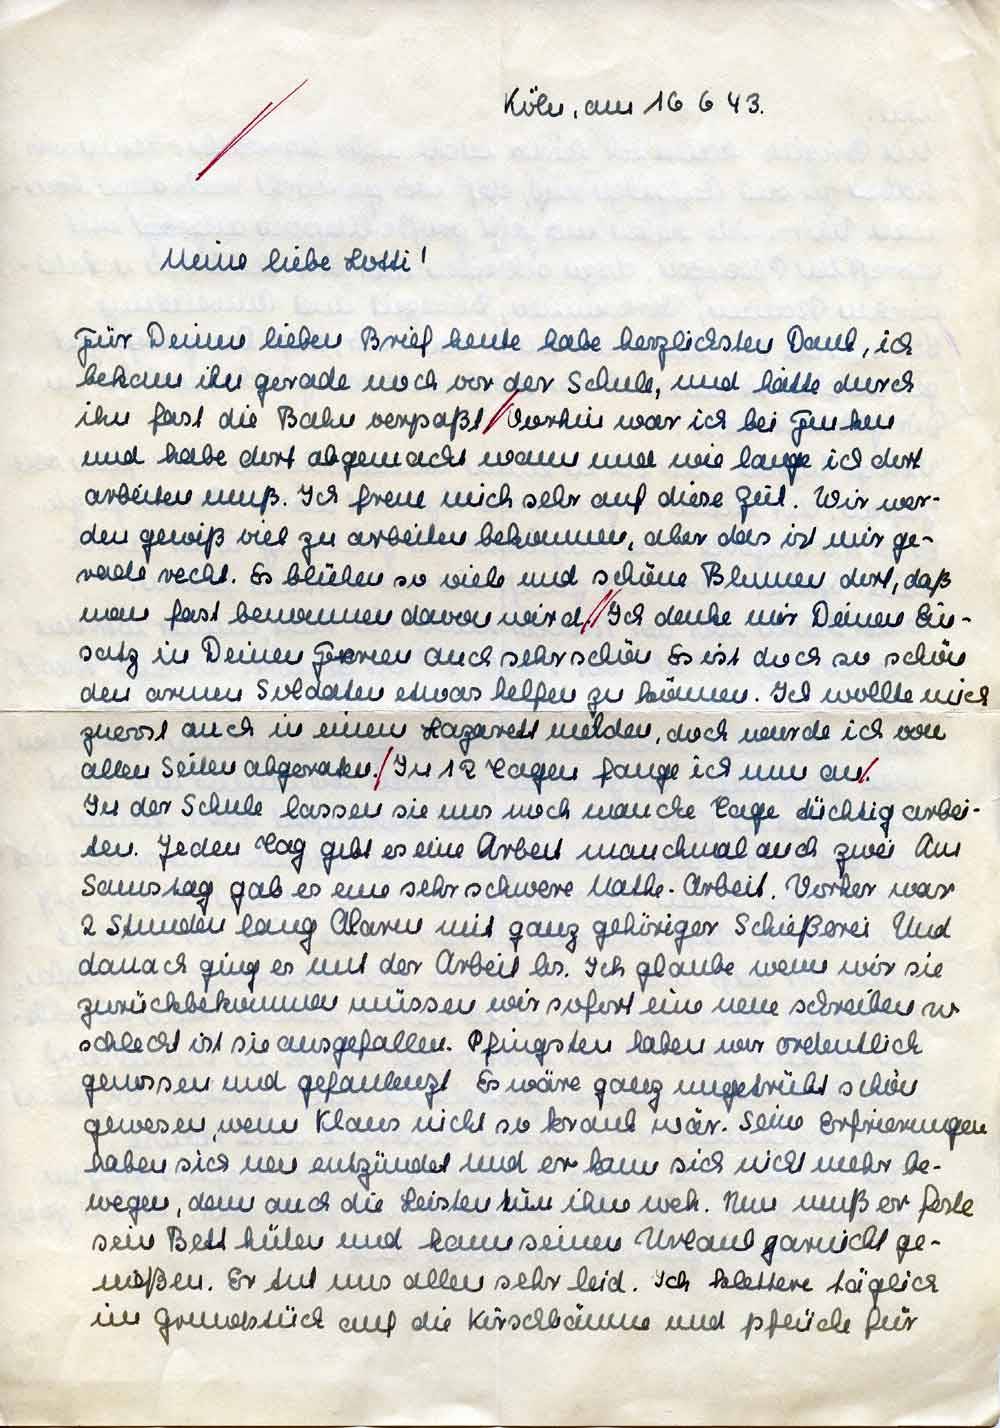 Köln, am 16 6 43.
Meine liebe Lotti!
Für Deinen lieben Brief heute habe herzlichsten Dank, ich
bekam ihn gerade noch vor der Schule, und hätte durch
ihn fast die Bahn verpaßt. Vorhin war ich bei Finken
und habe dort abgemacht wann und wie lange ich dort
arbeiten muß. Ich freue mich sehr auf diese Zeit. Wir wer-
den gewiß viel zu arbeiten bekommen, aber das ist mir ge-
rade recht. Es blühen so viele und schöne Blumen dort, daß
man fast benommen davon wird. Ich denke mir Deinen Ein-
satz in Deinen Ferien auch sehr schön Es ist doch so schön
den armen Soldaten etwas helfen zu können. Ich wollte mich
zuerst auch in einem Lazarett melden, doch wurde ich von
allen Seiten abgeraten. In 12 Tagen fange ich nun an.
In der Schule lassen sie uns noch manche Tage tüchtig arbei-
ten. Jeden Tag gibt es eine Arbeit manchmal auch zwei Am
Samstag gab es eine sehr schwere Mathe-Arbeit. Vorher war
2 Stunden lang Alarm mit ganz gehöriger Schießerei Und
danach ging es mit der Arbeit los. Ich glaube wenn wir sie
zurückbekommen müssen wir sofort eine neue schreiben so
schlecht ist sie ausgefallen. Pfingsten haben wir ordentlich
genossen und gefaulenzt Es wäre ganz ungetrübt schön
gewesen, wenn Klaus nicht so krank wär. Seine Erfrierungen
haben sich neu entzündet und er kann sich nicht mehr be-
wegen, denn auch die Leisten tun ihm weh. Nun muß er feste
sein Bett hüten und kann seinen Urlaub garnicht ge-
nießen. Er tut uns allen sehr leid. Ich klettere täglich
im Grundstück auf die Kirschbäume und pflücke für